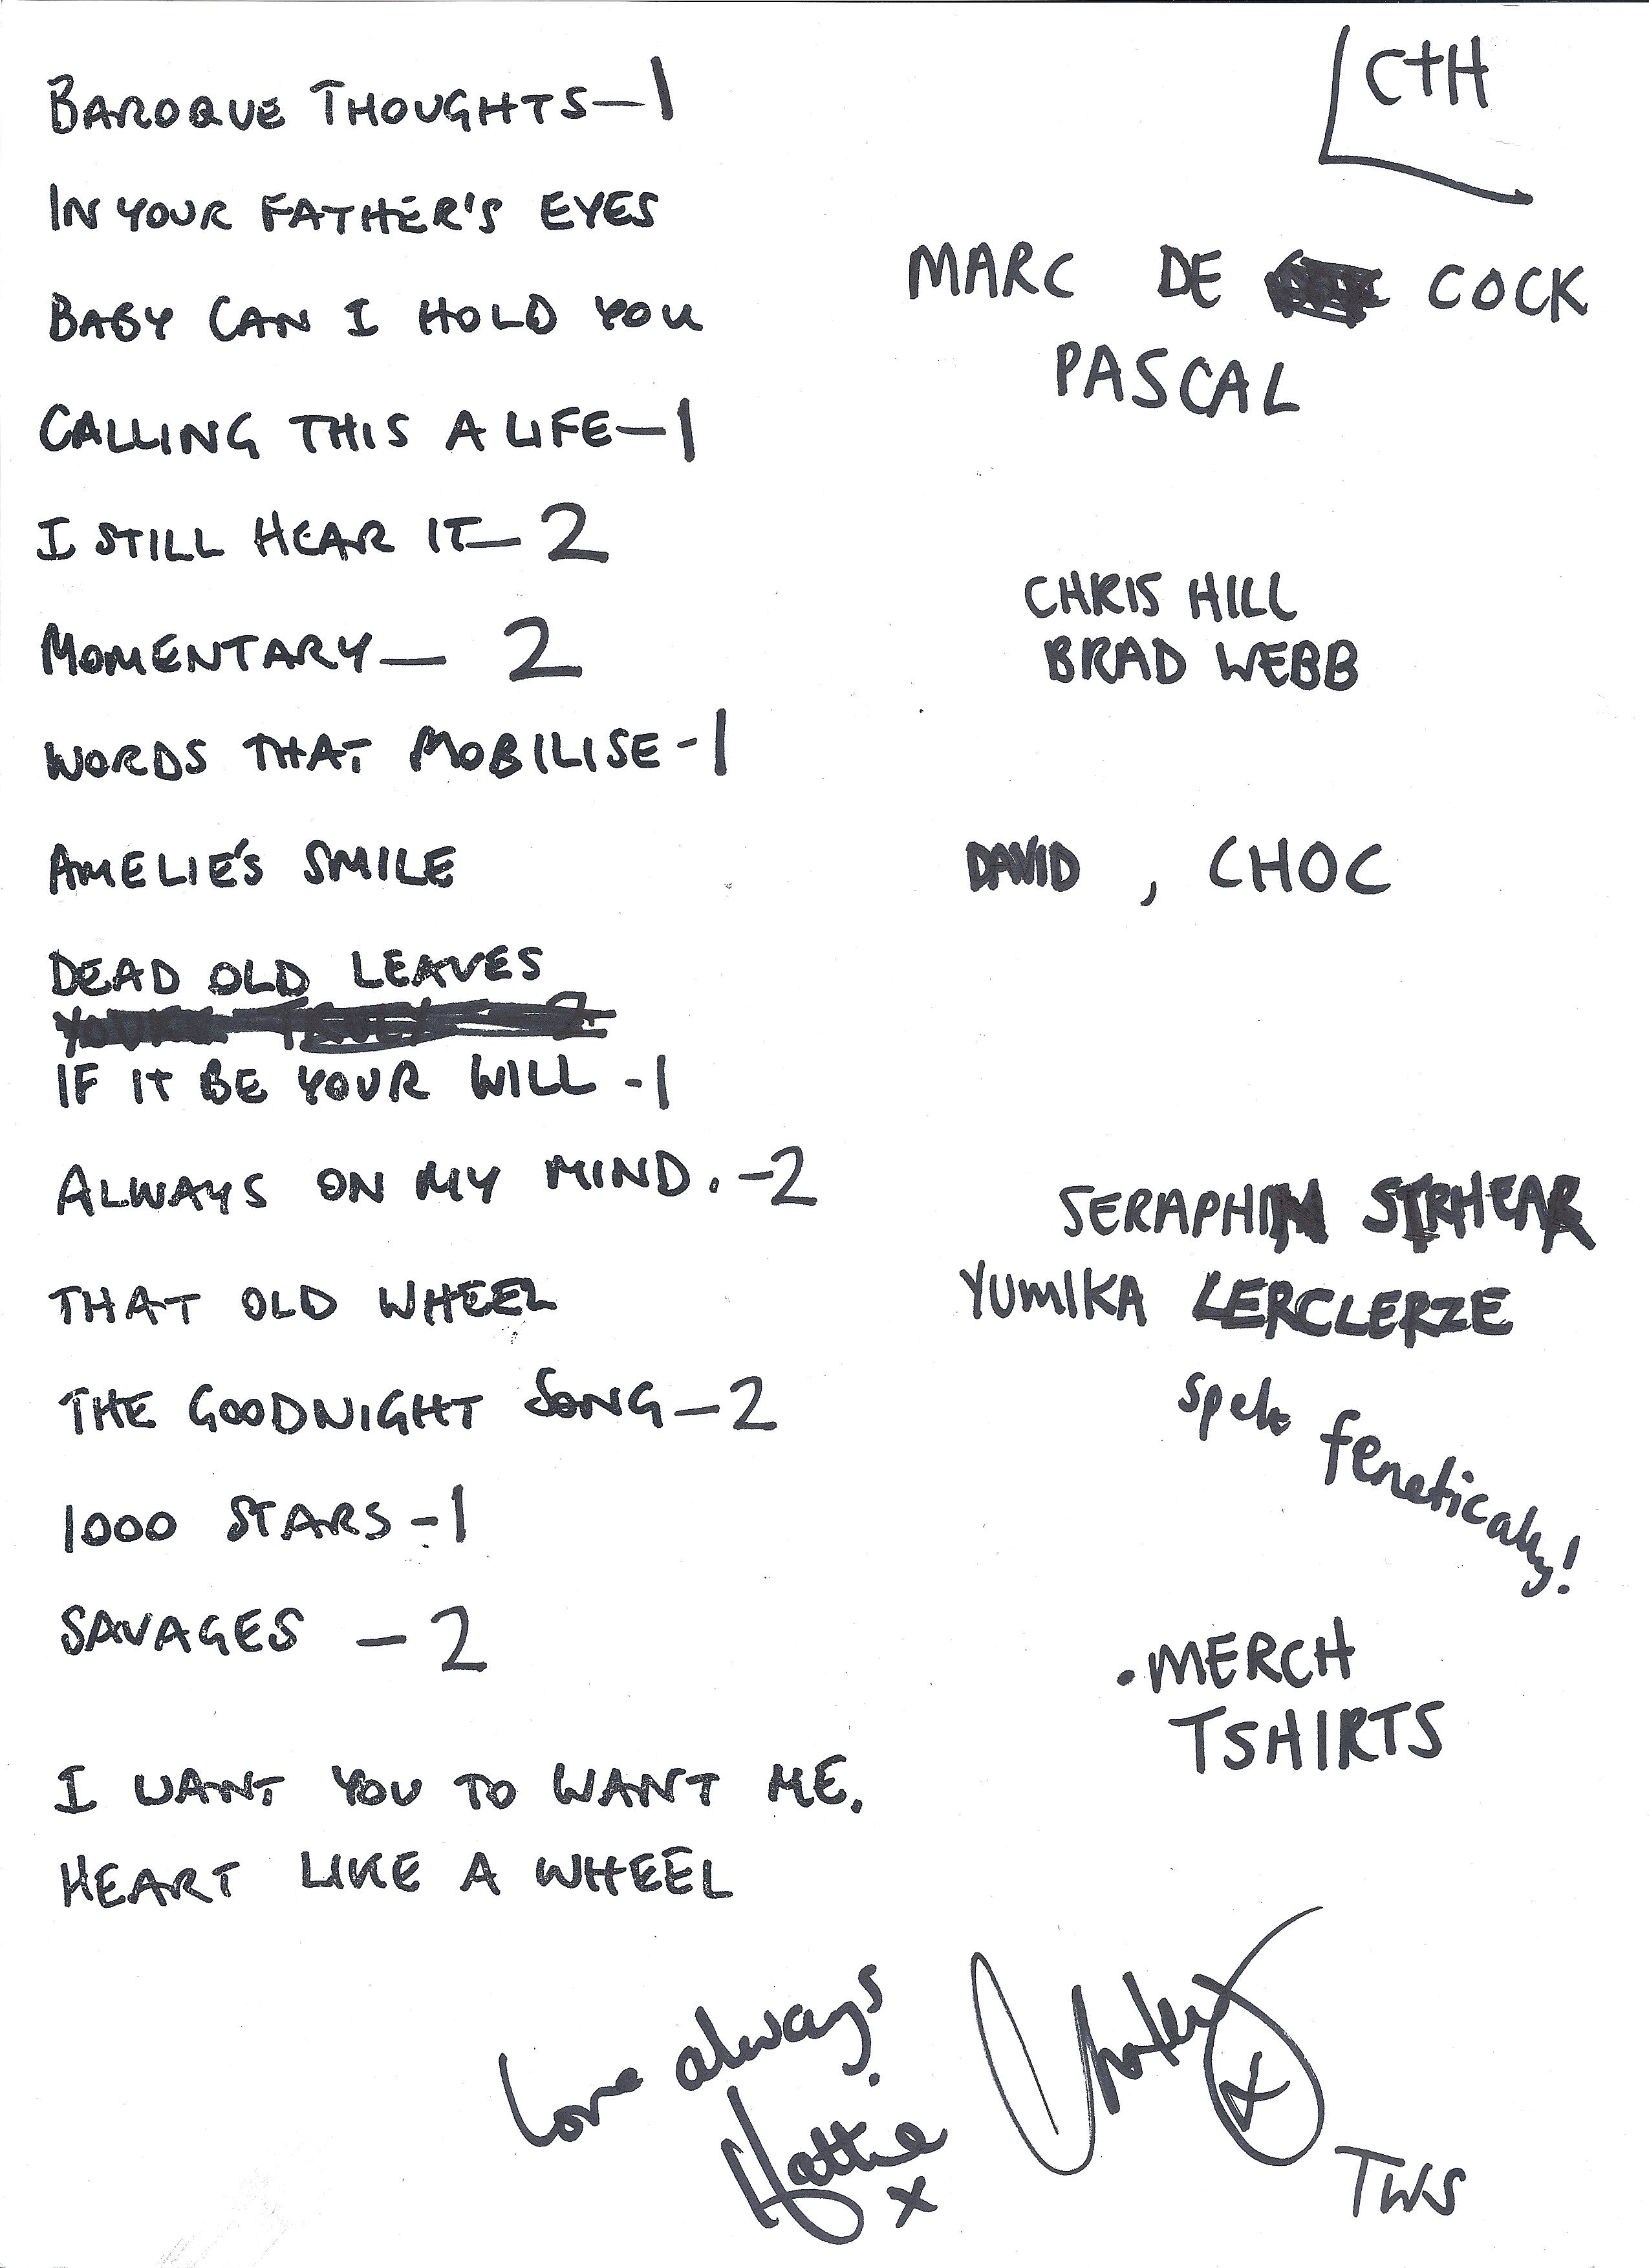 BAROQUE THOUGHTS—1
IN YOUR FATHER'S EYES
BABY CAN I HOLD YOU
CALLING THIS A LIFE—1
I STILL HEAR IT—2
MOMENTARY—2
WORDS THAT MOBILISE-1
AMELIE'S SMILE
DEAD OLD LEAVES
IF IT BE YOUR WILL -1
ALWAYS ON MY MIND. -2
THAT OLD WHEEL
THE GOODNIGHT SONG—2
1000 STARS-1
SAVAGES -2
I WANT YOU TO WANT ME.
HEART LIKE A WHEEL
C+H
MARC DE COCK
PASCAL
CHRIS HILL
BRAD WEBB
DAVID , CHOC
SERAPHIN STRHEAR
YUMIKA LERCLERZE
fenetically!
.MERCH
TSHIRTS
Love always
Hattie
x
x
TWS